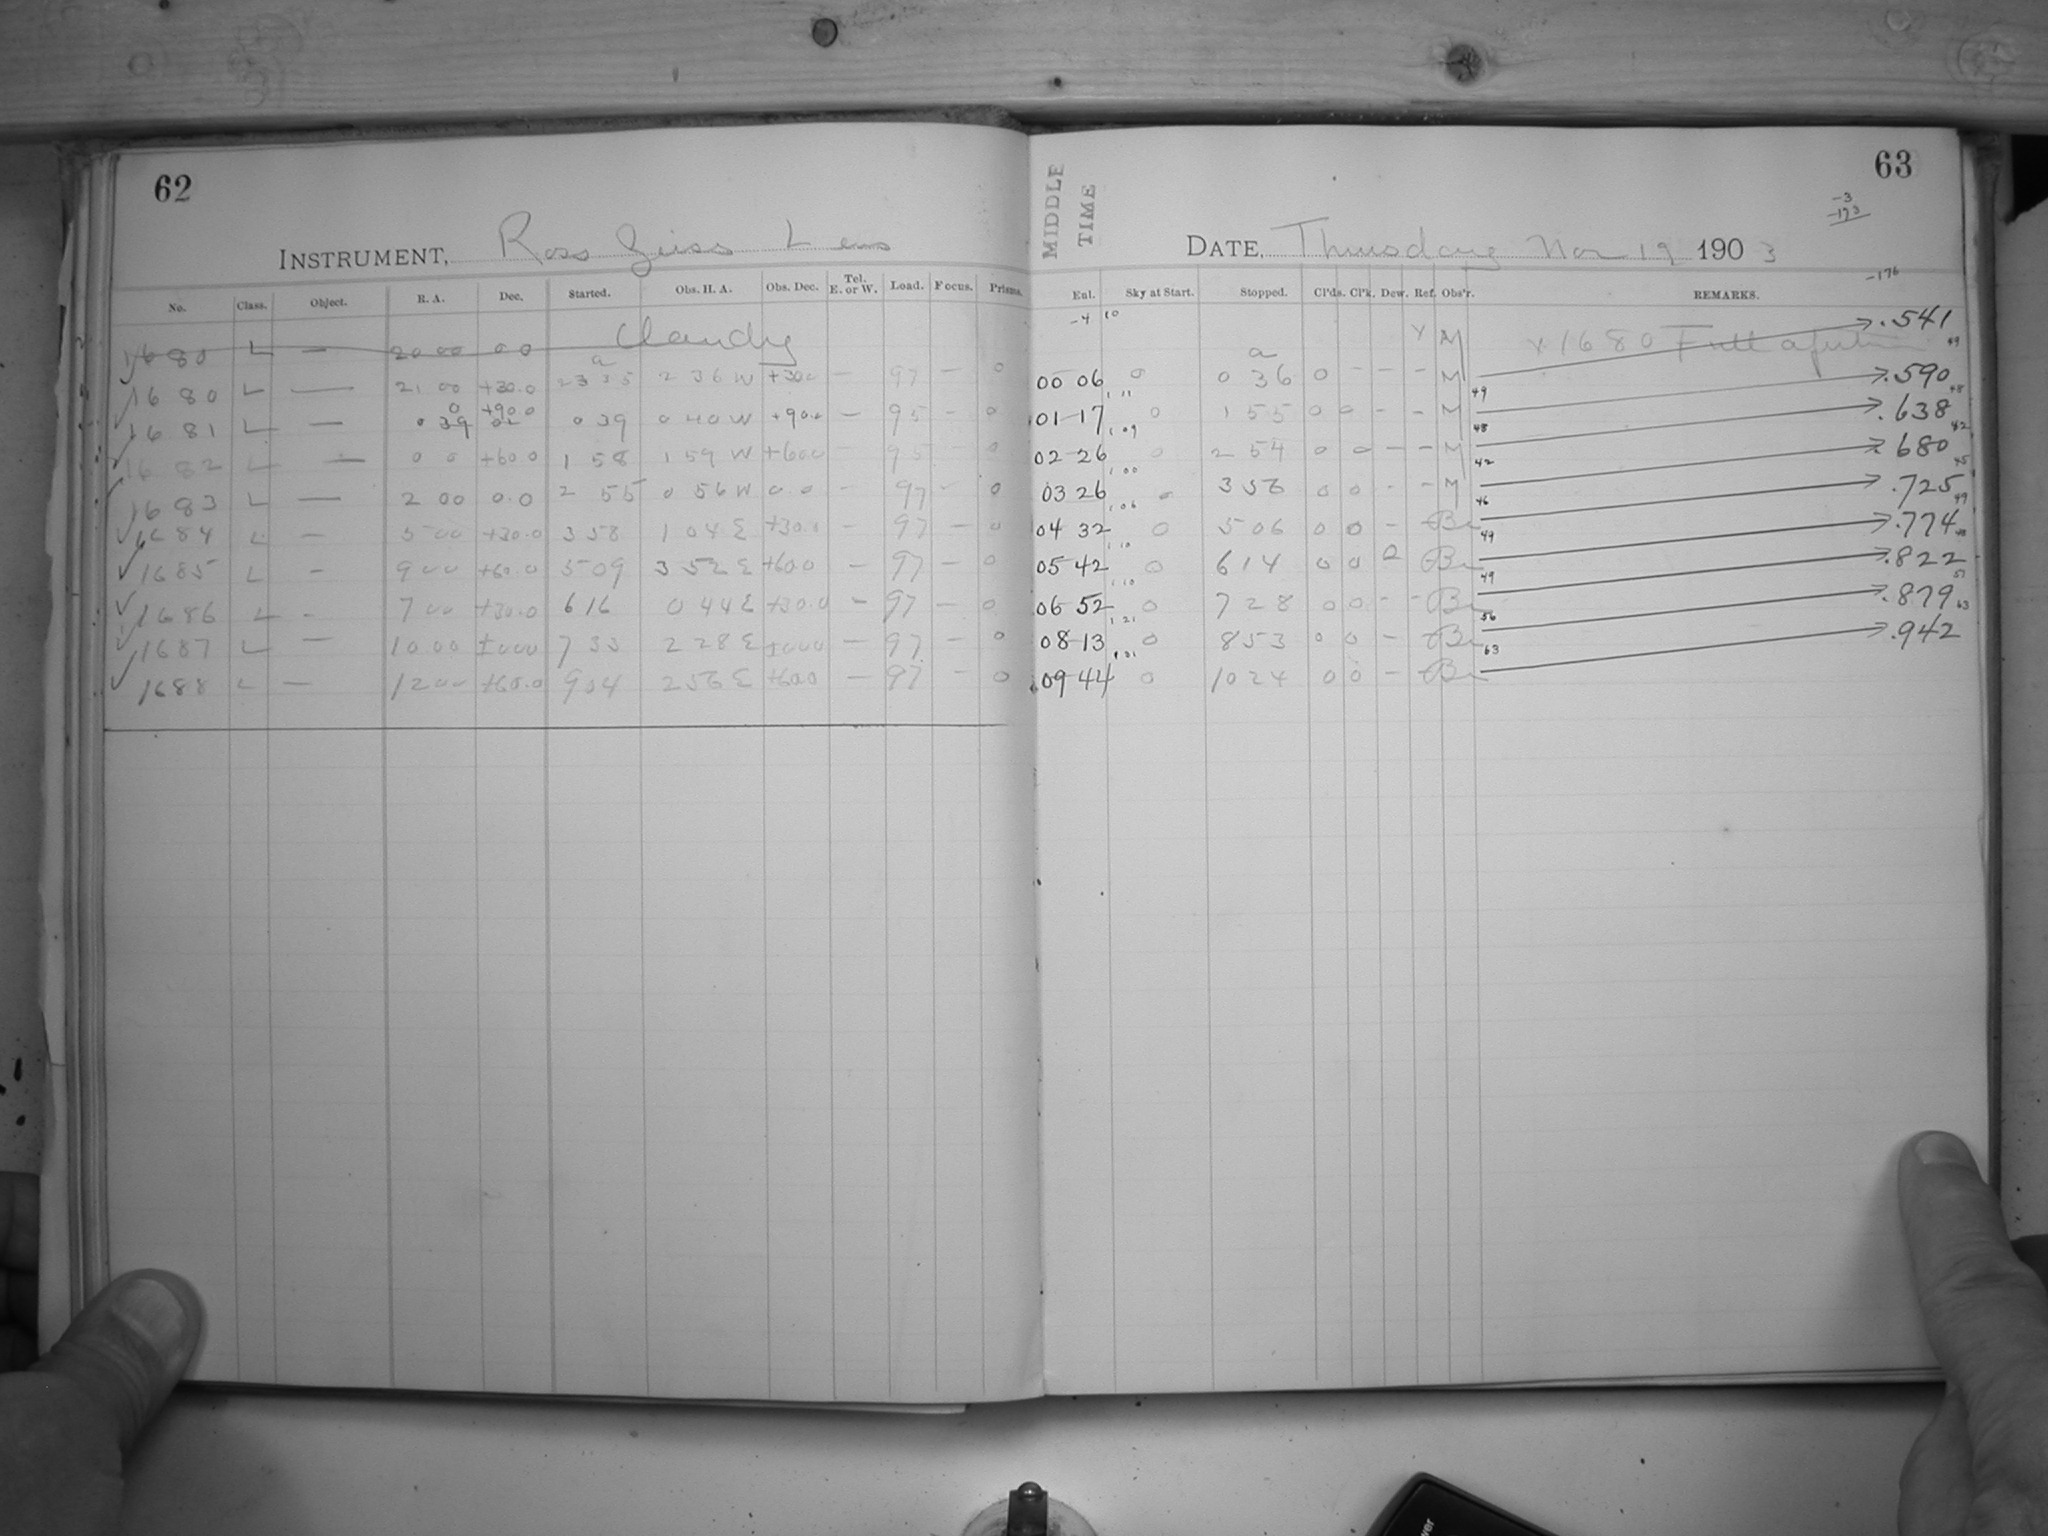 62
INSTRUMENT, Ross Zeiss Lens
No. Class. Object. R. A. Dec. Started. Obs. H. A. Obs. Dec. Tel. E. or W. Load. Focus. Prisms.
1680 L — 20 00 00 Cloudy
1680 L — 21 00 +30.0 23 35 2 36 W +30.0 — 97 — 0
1681 L — 0 39 +90.0 0 39 0 40 W +90.0 — 95 — 0
1682 L — 0 0 +60.0 1 58 1 59 W +60.0 — 95 — 0
1683 L — 2 00 0.0 2 55 0 56 W 0.0 — 97 — 0
1684 L — 5 00 +30.0 3 58 1 04 E +30.0 — 97 — 0
1685 L — 9 00 +60.0 5 09 3 52 E +60.0 — 97 — 0
1686 L — 7 00 +30.0 6 16 0 44 E +30.0 — 97 — 0
1687 L — 10 00 ±000 7 33 2 28 E ±000 — 97 — 0
1688 L — 12 00 +60.0 9 04 2 56 E +60.0 — 97 — 0
63
MIDDLE TIME
-3
-173
DATE, Thursday Nov 19 1903
-176
Ent. Sky at Start. Stopped. Cl'ds. Cl'k. Dew. Ref. Obs'r. REMARKS.
-4 10 x M x 1680 Full aperture .541
00 06 0 0 36 0 — — — M 49 .590
01 17 0 1 55 0 0 — — M 48 .638
02 26 0 2 54 0 0 — — M 42 .680
03 26 0 3 56 0 0 — — M 46 .725
04 32 0 5 06 0 0 — — 49 .774
05 42 0 6 14 0 0 0 — 49 .822
06 52 0 7 28 0 0 — — 56 .879
08 13 0 8 53 0 0 — — 63 .942
09 44 0 10 24 0 0 — —